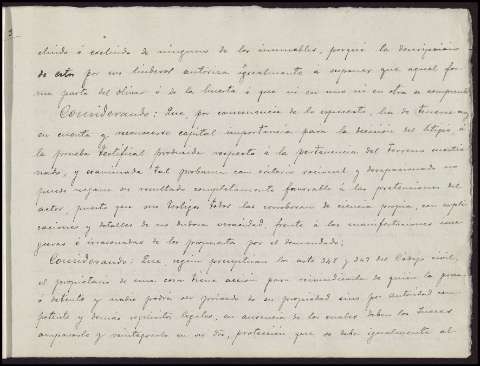 cluido ó excluido de ninguno de los inmuebles, porque la descripcion
de estos por sus linderos autoriza igualmente á suponer que aquel for
ma parte del olivar ó de la huerta ó que ni en uno ni en otra se comprende
Considerando: Que, por consecuencia de lo expuesto, ha de tenerse muy
en cuenta y reconocerse capital importancia para la decision del litigio á
la prueba testifical producida respecto á la pertenencia del terreno mencio
nado, y examinada tal probanza con criterio racional y desapasionado no
puede negarse su resultado completamente favorable á las pretensiones del
actor, puesto que sus testigos todos las corroboran de ciencia propia, con expli
caciones y detalles de no dudosa veracidad, frente á las manifestaciones inse
guras ó irrazonadas de los propuestos por el demandado;
Considerando: Que segun preceptúan los artos 348 y 349 del Código civil,
el propietario de una cosa tiene accion para reivindicarla de quien la posea
ó detente y nadie podrá ser privado de su propiedad sino por autoridad com
petente y demas requisitos legales; en ausencia de los cuales deben los Jueces
ampararlo y reintegrarlo en su dro, proteccion que se debe igualmente al